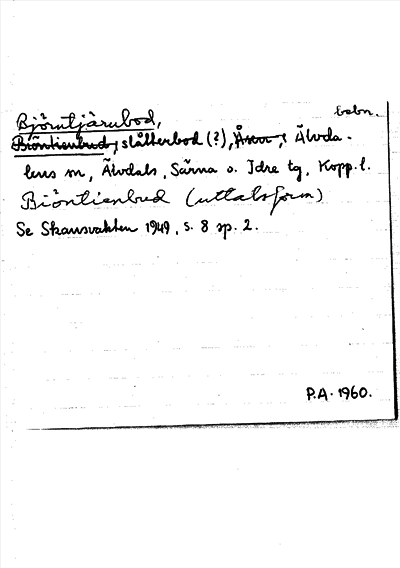 bebn.
Björntjärnbod,
Biöntienbud, slåtterbod (?), Åsen, i Älvda-
lens sn, Älvdals, Särna o. Idre tg, Kopp. l.
Biöntienbud (uttalsform)
Se Skansvakten 1949, s. 8 sp. 2.
P.A. 1960.